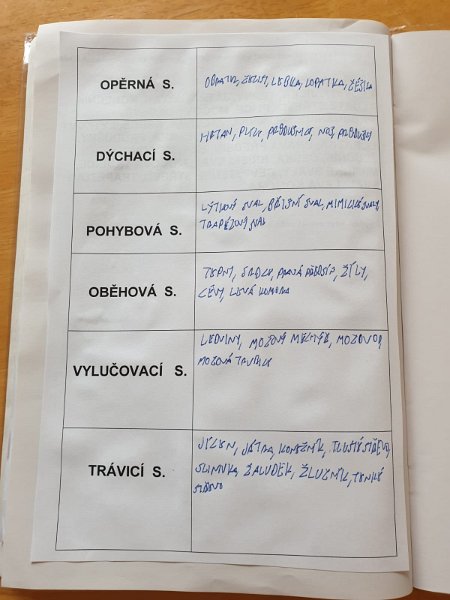 OPĚRNÁ S.
OBRATEL, ŽEBRA, LEBKA, LOPATKA, ČÉŠKA
DÝCHACÍ S.
HRTAN, PLÍCE, PRŮDUŠNICE, NOS, PRŮDUŠKY
POHYBOVÁ S.
LÝTKOVÝ SVAL, BŘIŠNÍ SVAL, MIMICKÉ SVALY,
TRAPÉZOVÝ SVAL
OBĚHOVÁ S.
TEPNY, SRDCE, PRAVÁ PŘEDSÍŇ, ŽÍLY,
CÉVY, LEVÁ KOMORA
VYLUČOVACÍ S.
LEDVINY, MOČOVÝ MĚCHÝŘ, MOČOVOD,
MOČOVÁ TRUBICE
TRÁVICÍ S.
JÍCEN, JÁTRA, KONEČNÍK, TLUSTÉ STŘEVO,
SLINIVKA, ŽALUDEK, ŽLUČNÍK, TENKÉ
STŘEVO